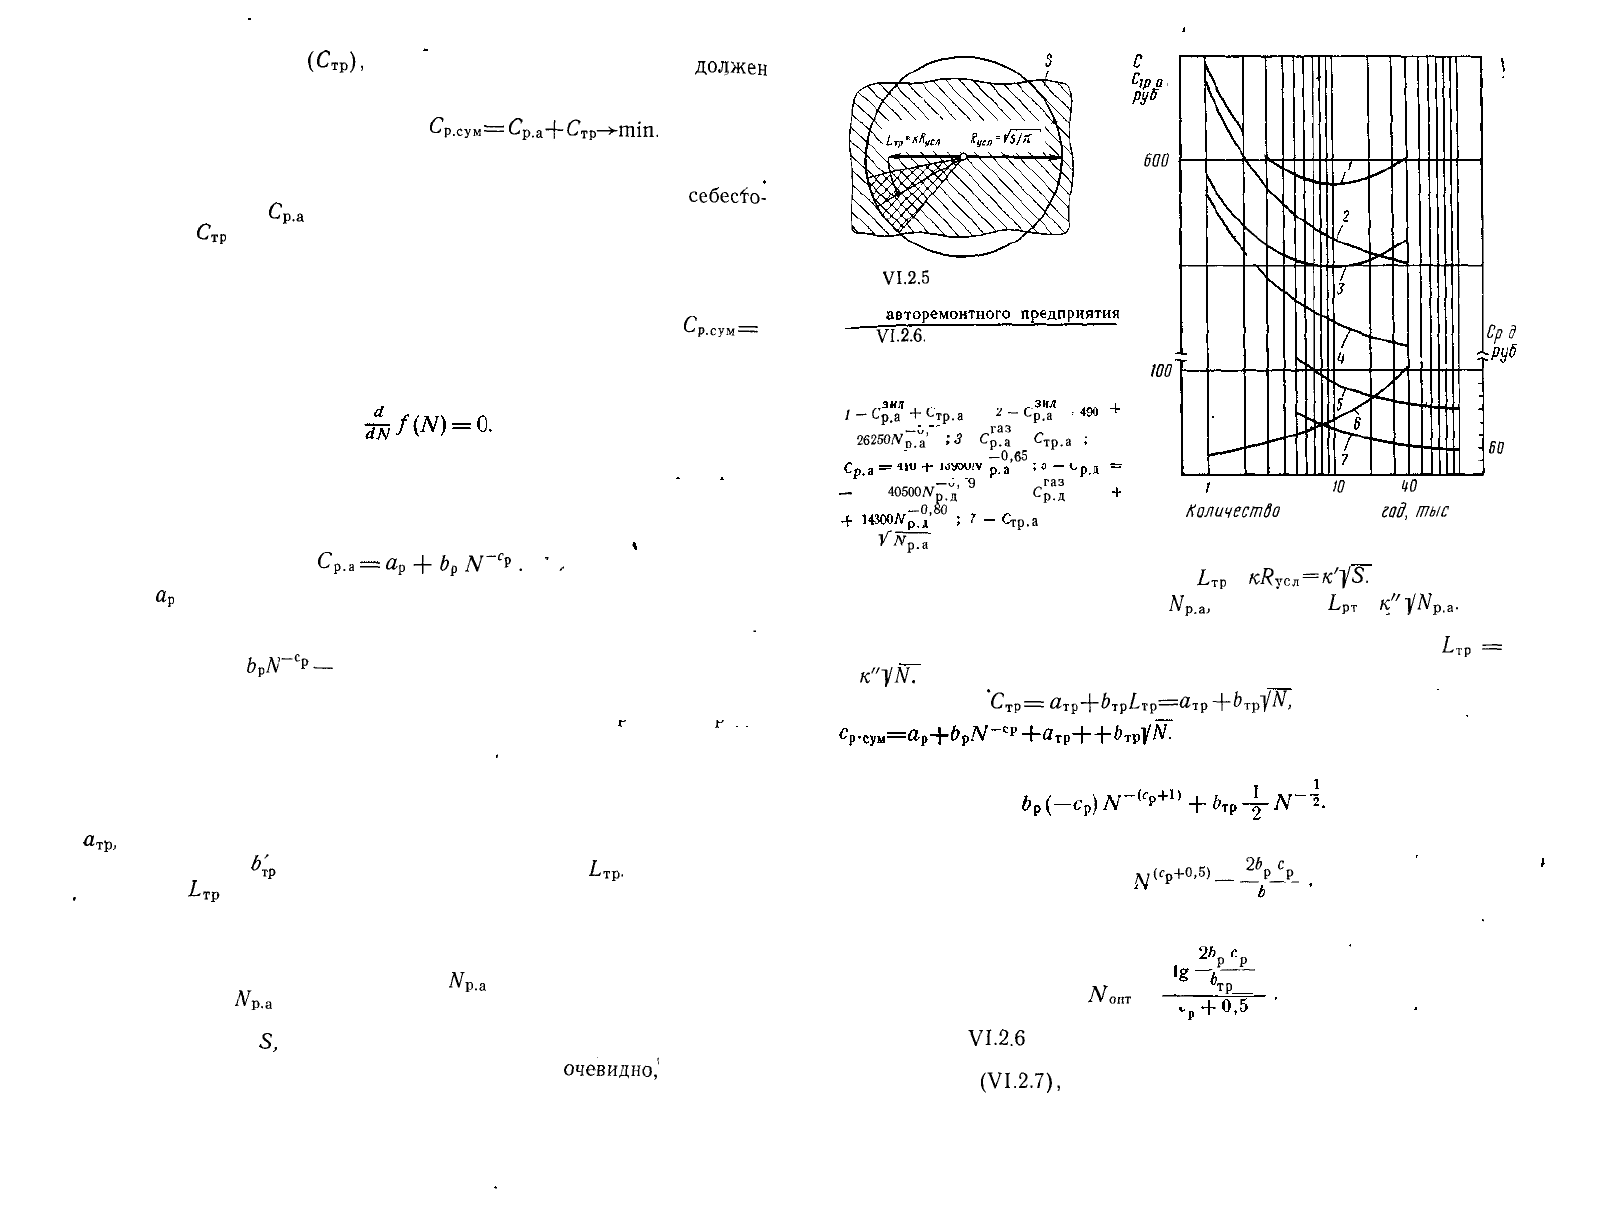 (Cтр),
должен
Cр.сум=Cр.а+Cтр→min.
себесто-
Cр.а
Cтр
Cр.сум=
d/dN f (N) = 0.
Cр.а = aр + bр N^−cр .
aр
bрN^−cр —
aтр,
b′тр Lтр.
Lтр
Nр.а
Nр.а
S,
очевидно,
S
Lтр=кRусл Rусл=√S/π
VI.2.5
авторемонтного предприятия
VI.2.6.
1 — Cр.а^зил + Cтр.а 2 — Cр.а^зил 490 +
26250Nр.а ; 3 Cр.а^газ Cтр.а ;
Cр.а = 410 + Nр.а^−0,65 ; Cр.д =
— 40500Nр.д Cр.д^газ +
+ 14300Nр.д^−0,80 ; 7 — Cтр.а
√Nр.а
C
Cтр.а,
руб
600
100
1
2
3
4
5
6
7
Cр д
руб
60
1 10 40
Количество год, тыс
Lтр кRусл=к′√S.
Nр.а, Lрт к″√Nр.а.
Lтр =
к″√N.
Cтр= aтр+bтрLтр=aтр+bтр√N,
cр.сум=aр+bрN^−cр+aтр++bтр√N.
bр (−cр) N^−(cр+1) + bтр 1/2 N^−1/2.
N^(cр+0,5) — 2bр cр / b .
Nопт lg 2bр cр / bтр / cр + 0,5 .
VI.2.6
(VI.2.7),